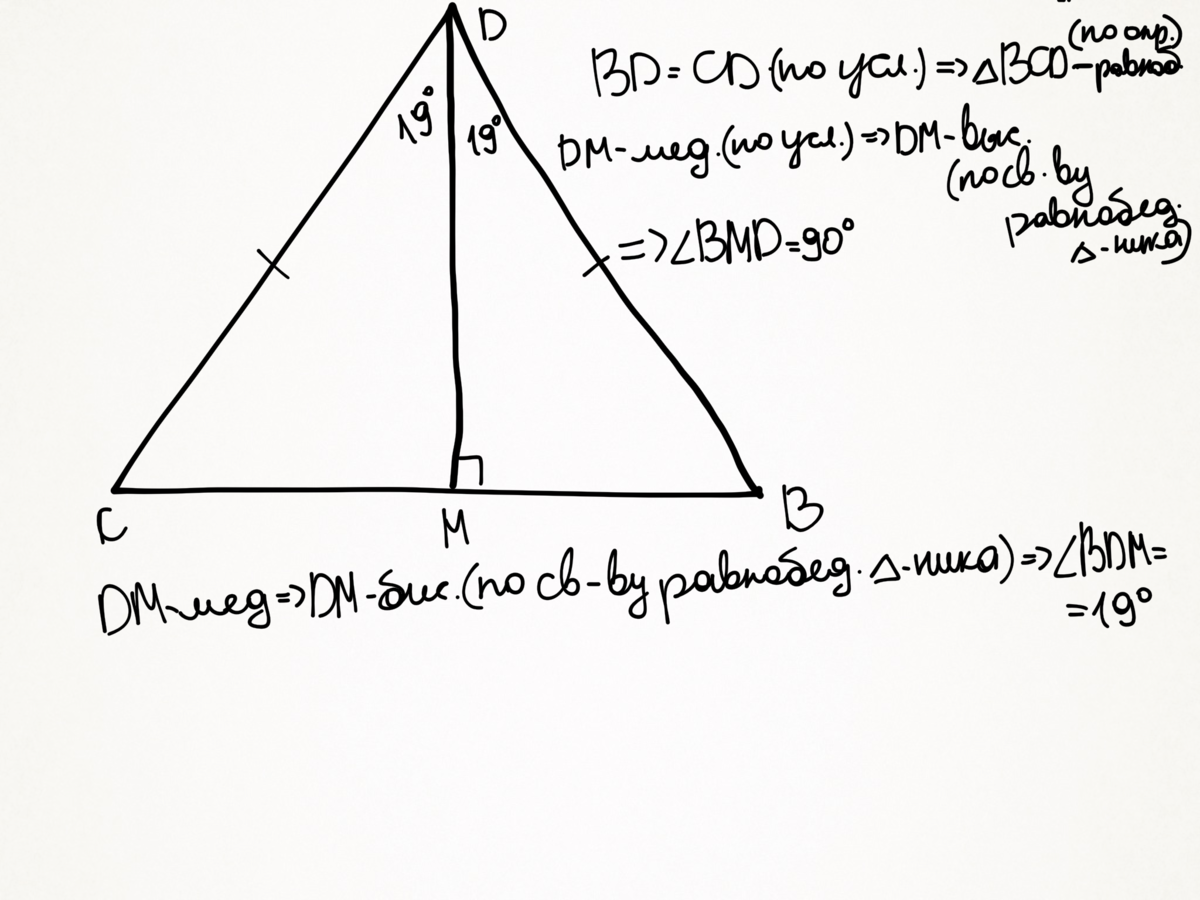 D
19° 19°
(по опр.)
BD = CD (по усл.) => △BCD – равноб
DM - мед. (по усл.) => DM - выс.
(по св. ву
равнобед.
△-ника)
=> ∠BMD = 90°
C M B
DM - мед => DM - бис. (по св-ву равнобед. △-ника) => ∠BDM =
= 19°